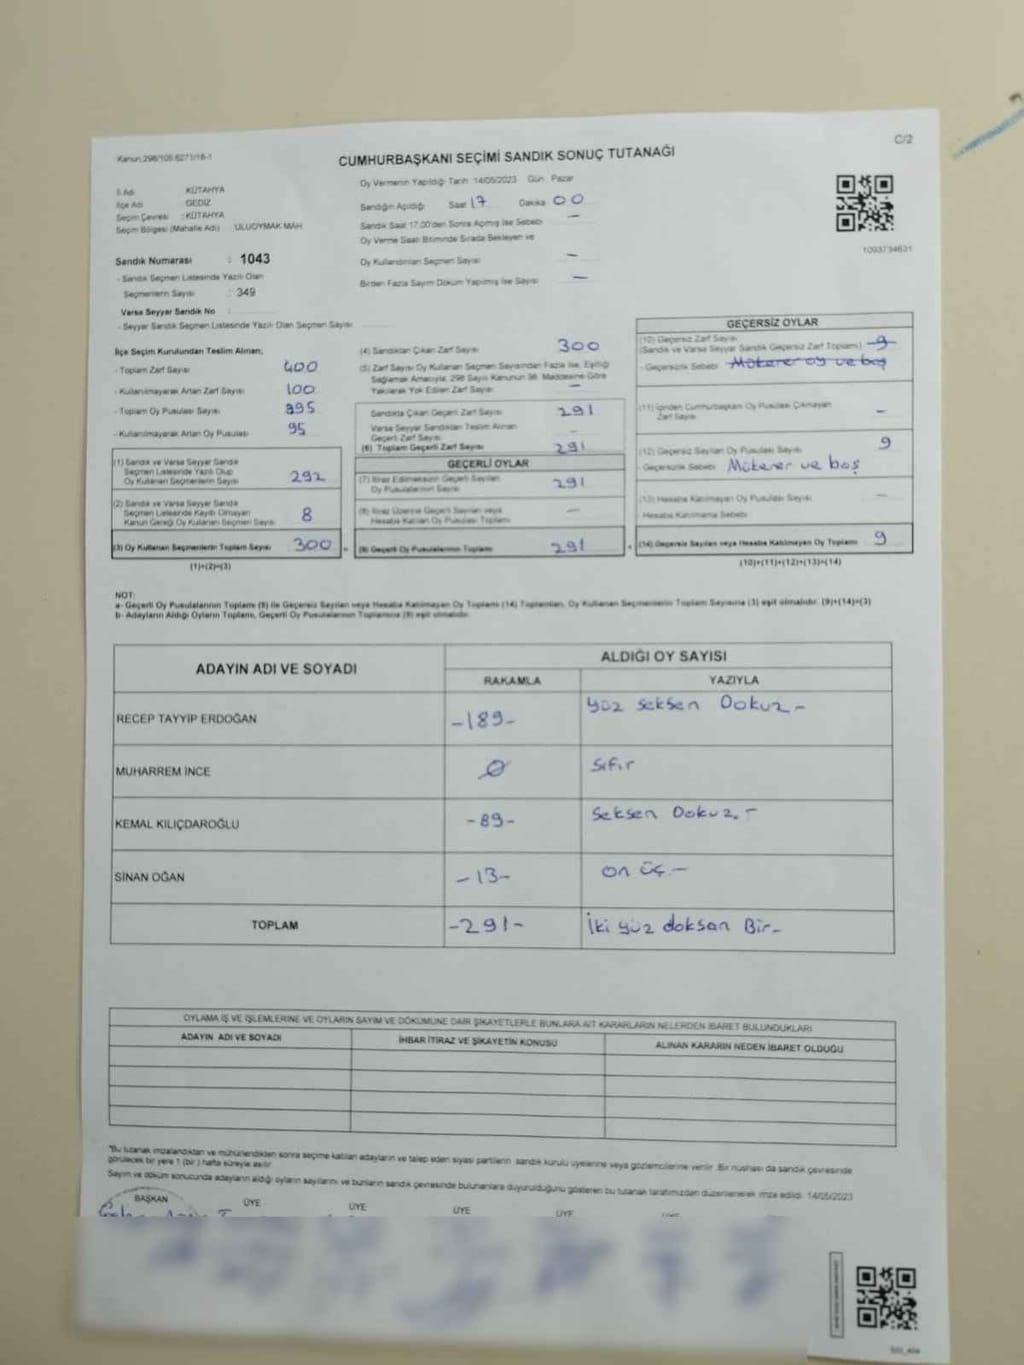 C/2
Kanun:298/105 6271/18-1
CUMHURBAŞKANI SEÇİMİ SANDIK SONUÇ TUTANAĞI
İl Adı KÜTAHYA
İlçe Adı GEDİZ
Seçim Çevresi : KÜTAHYA
Seçim Bölgesi (Mahalle Adı) ULUOYMAK MAH
Oy Vermenin Yapıldığı Tarih :14/05/2023 Gün : Pazar
Sandığın Açıldığı Saat 17 Dakika 00
Sandık Saat 17:00'den Sonra Açılmış İse Sebebi -
Oy Verme Saati Bitiminde Sırada Bekleyen ve
Oy Kullandırılan Seçmen Sayısı -
Birden Fazla Sayım Döküm Yapılmış İse Sayısı -
1093734631
Sandık Numarası : 1043
- Sandık Seçmen Listesinde Yazılı Olan
Seçmenlerin Sayısı : 349
Varsa Seyyar Sandık No :
- Seyyar Sandık Seçmen Listesinde Yazılı Olan Seçmen Sayısı
İlçe Seçim Kurulundan Teslim Alınan;
- Toplam Zarf Sayısı 400
- Kullanılmayarak Artan Zarf Sayısı 100
- Toplam Oy Pusulası Sayısı 395
- Kullanılmayarak Artan Oy Pusulası 95
(1) Sandık ve Varsa Seyyar Sandık
Seçmen Listesinde Yazılı Olup
Oy Kullanan Seçmenlerin Sayısı 292
(2) Sandık ve Varsa Seyyar Sandık
Seçmen Listesinde Kayıtlı Olmayan
Kanun Gereği Oy Kullanan Seçmen Sayısı 8
(3) Oy Kullanan Seçmenlerin Toplam Sayısı 300
(1)+(2)=(3)
(4) Sandıktan Çıkan Zarf Sayısı 300
(5) Zarf Sayısı Oy Kullanan Seçmen Sayısından Fazla İse, Eşitliği
Sağlamak Amacıyla, 298 Sayılı Kanunun 98. Maddesine Göre
Yakılarak Yok Edilen Zarf Sayısı -
Sandıkta Çıkan Geçerli Zarf Sayısı 291
Varsa Seyyar Sandıktan Teslim Alınan
Geçerli Zarf Sayısı -
(6) Toplam Geçerli Zarf Sayısı 291
GEÇERLİ OYLAR
(7) İtiraz Edilmeksizin Geçerli Sayılan
Oy Pusulalarının Sayısı 291
(8) İtiraz Üzerine Geçerli Sayılan veya
Hesaba Katılan Oy Pusulası Toplamı -
(9) Geçerli Oy Pusulalarının Toplamı 291
GEÇERSİZ OYLAR
(10) Geçersiz Zarf Sayısı
(Sandık ve Varsa Seyyar Sandık Geçersiz Zarf Toplamı) 9
- Geçersizlik Sebebi Mükerer oy ve boş
(11) İçinden Cumhurbaşkanı Oy Pusulası Çıkmayan
Zarf Sayısı -
(12) Geçersiz Sayılan Oy Pusulası Sayısı 9
- Geçersizlik Sebebi Mükerer ve boş
(13) Hesaba Katılmayan Oy Pusulası Sayısı -
- Hesaba Katılmama Sebebi
(14) Geçersiz Sayılan veya Hesaba Katılmayan Oy Toplamı 9
(10)+(11)+(12)+(13)=(14)
NOT:
a- Geçerli Oy Pusulalarının Toplamı (9) ile Geçersiz Sayılan veya Hesaba Katılmayan Oy Toplamı (14) Toplamları, Oy Kullanan Seçmenlerin Toplam Sayısına (3) eşit olmalıdır. (9)+(14)=(3)
b- Adayların Aldığı Oyların Toplamı, Geçerli Oy Pusulalarının Toplamına (9) eşit olmalıdır.
ADAYIN ADI VE SOYADI ALDIĞI OY SAYISI
RAKAMLA YAZIYLA
RECEP TAYYİP ERDOĞAN -189- Yüz Seksen Dokuz -
MUHARREM İNCE 0 Sıfır
KEMAL KILIÇDAROĞLU -89- Seksen Dokuz.-
SİNAN OĞAN -13- On üç.-
TOPLAM -291- İki yüz doksan Bir-
OYLAMA İŞ VE İŞLEMLERİNE VE OYLARIN SAYIM VE DÖKÜMÜNE DAİR ŞİKAYETLERLE BUNLARA AİT KARARLARIN NELERDEN İBARET BULUNDUKLARI
ADAYIN ADI VE SOYADI İHBAR İTİRAZ VE ŞİKAYETİN KONUSU ALINAN KARARIN NEDEN İBARET OLDUĞU
*Bu tutanak imzalandıktan ve mühürlendikten sonra seçime katılan adayların ve talep eden siyasi partilerin sandık kurulu üyelerine veya gözlemcilerine verilir. Bir nüshası da sandık çevresinde
görülecek bir yere 1 (bir) hafta süreyle asılır.
Sayım ve döküm sonucunda adayların aldığı oyların sayılarını ve bunların sandık çevresinde bulunanlara duyurulduğunu gösteren bu tutanak tarafımızdan düzenlenerek imza edildi. 14/05/2023
BAŞKAN ÜYE ÜYE ÜYE ÜYE